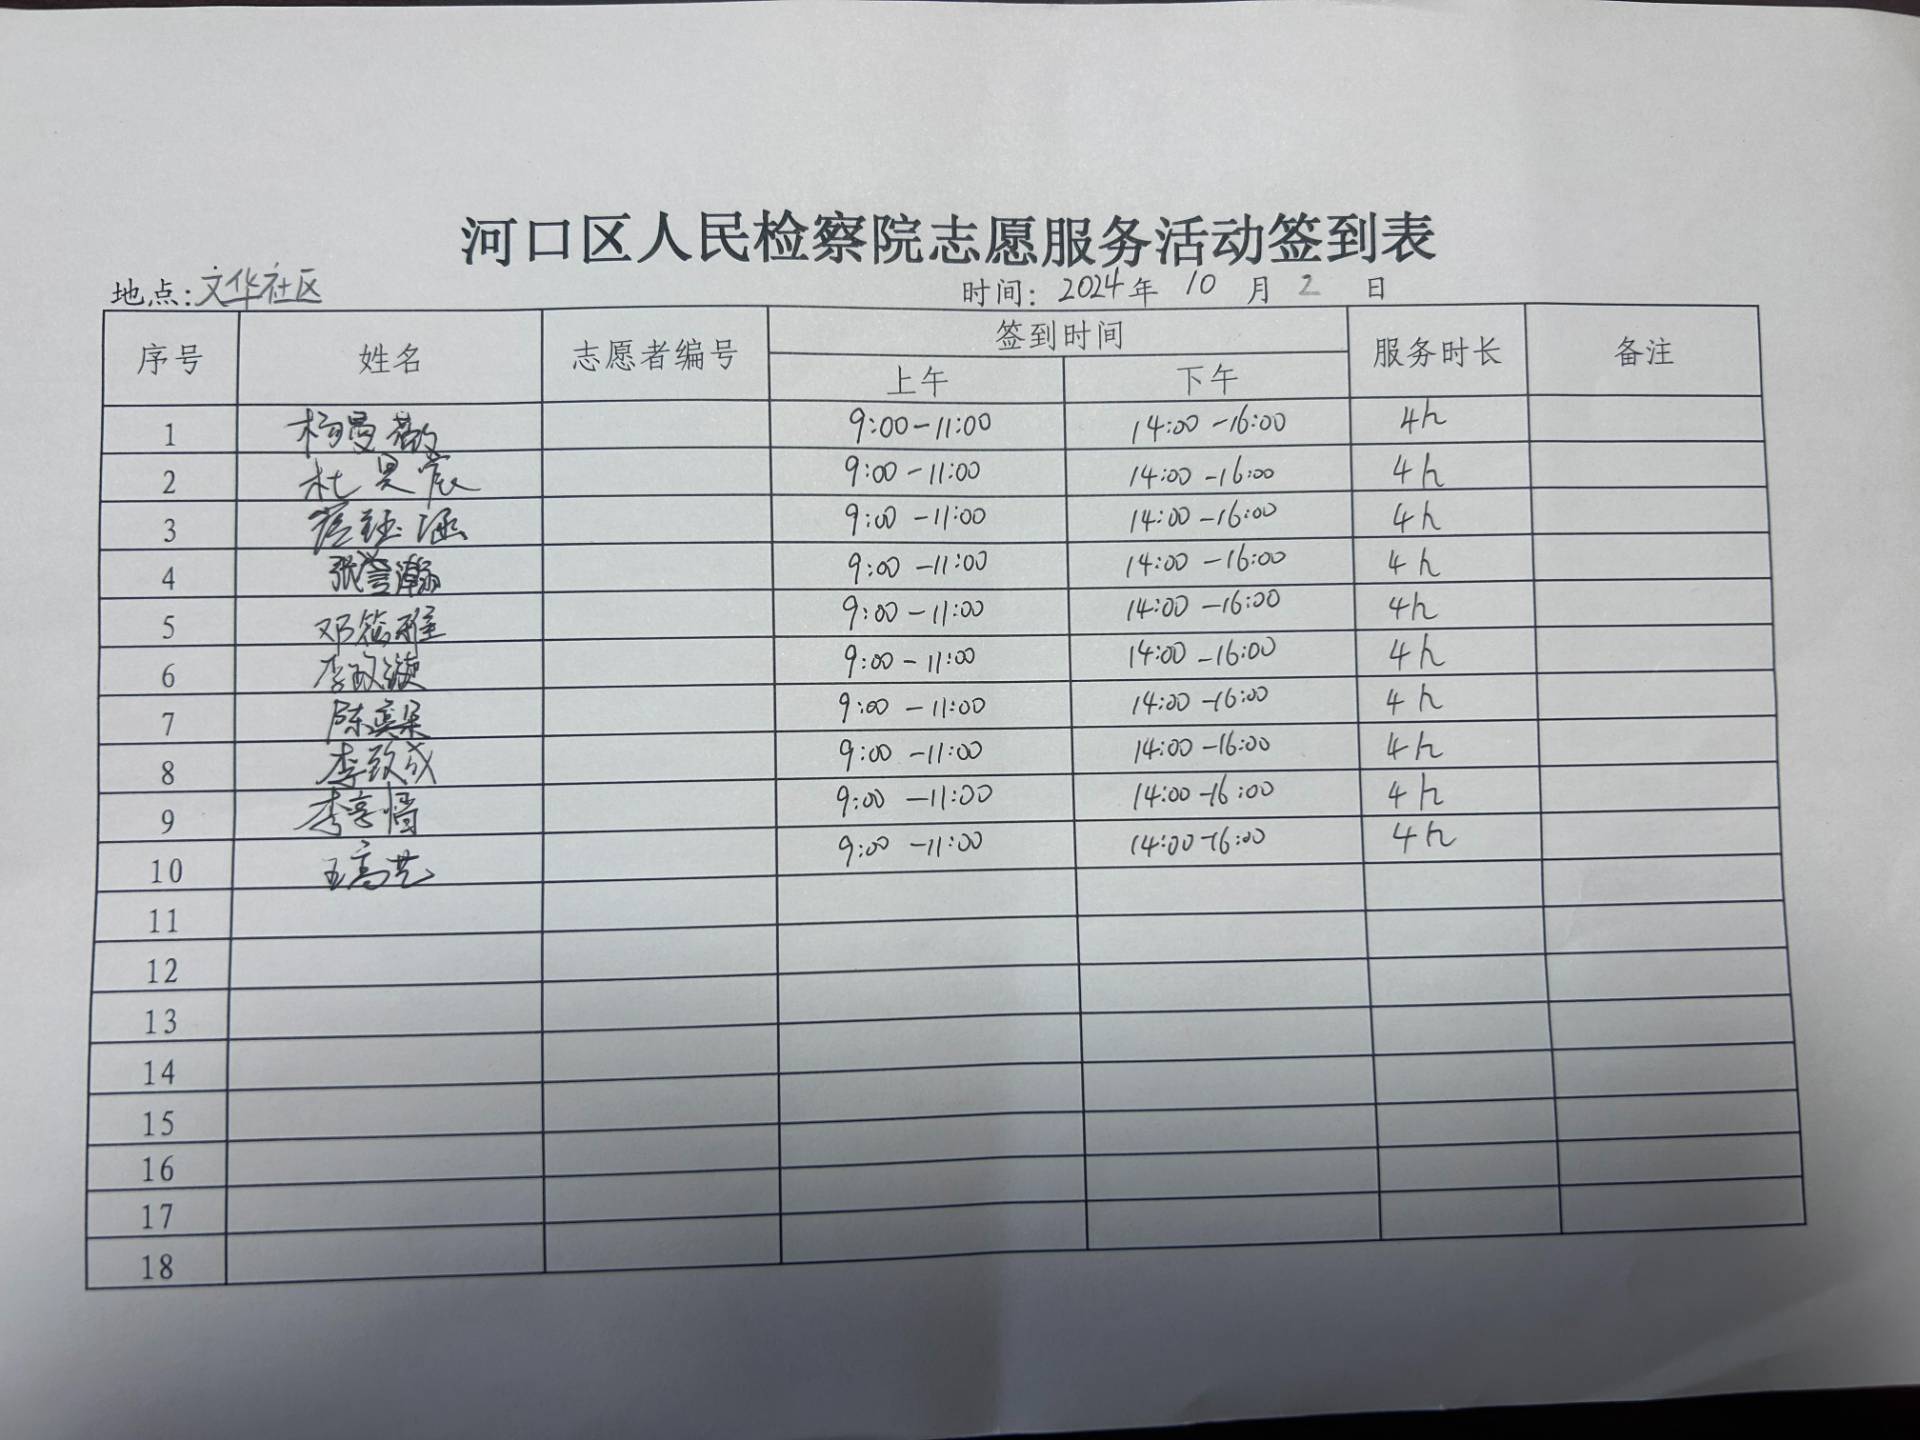 河口区人民检察院志愿服务活动签到表
地点:文华社区 时间: 2024年 10 月 2 日
序号 姓名 志愿者编号 签到时间 服务时长 备注
上午 下午
1 杨曼薇 9:00-11:00 14:00-16:00 4h
2 杜昊宸 9:00-11:00 14:00-16:00 4h
3 9:00-11:00 14:00-16:00 4h
4 张誉瀚 9:00-11:00 14:00-16:00 4h
5 邓筱雅 9:00-11:00 14:00-16:00 4h
6 李政 9:00-11:00 14:00-16:00 4h
7 陈奕朵 9:00-11:00 14:00-16:00 4h
8 李致成 9:00-11:00 14:00-16:00 4h
9 李 9:00-11:00 14:00-16:00 4h
10 王高艺 9:00-11:00 14:00-16:00 4h
11
12
13
14
15
16
17
18